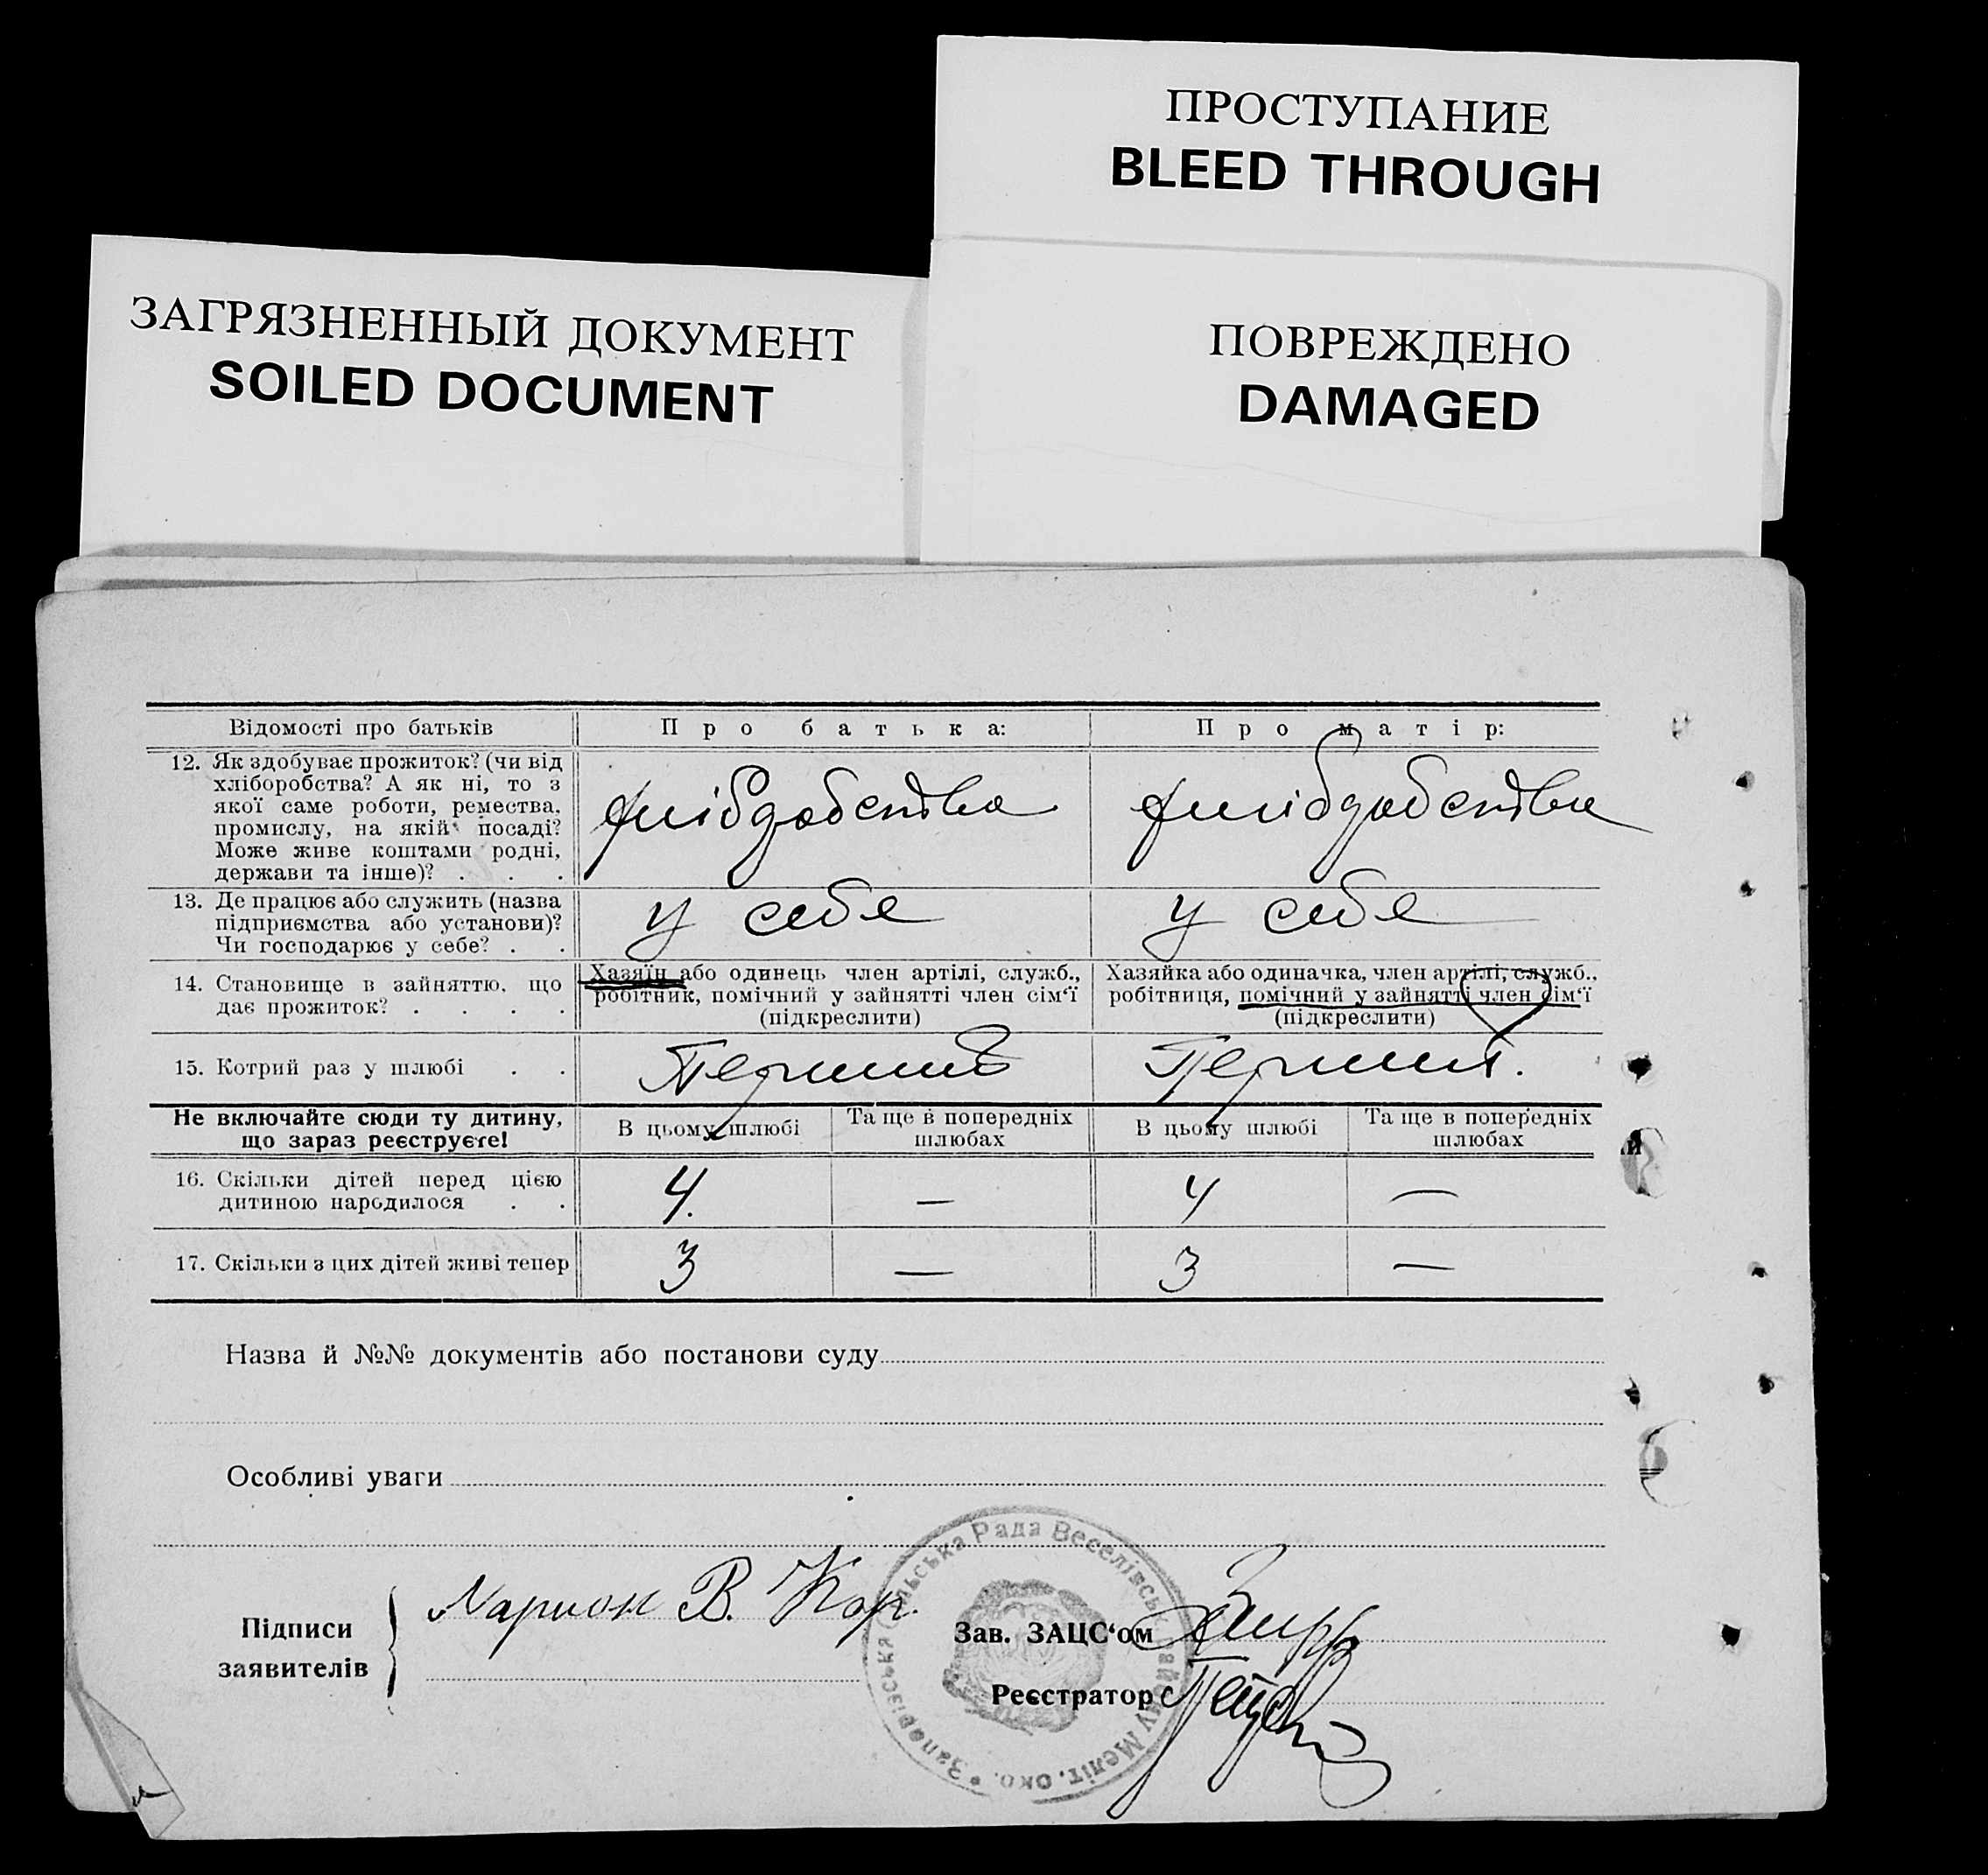 ПРОСТУПАНИЕ
BLEED THROUGH
ЗАГРЯЗНЕННЫЙ ДОКУМЕНТ
SOILED DOCUMENT
ПОВРЕЖДЕНО
DAMAGED
Відомості про батьків
Про батька:
Про матір:
12. Як здобуває прожиток? (чи від
хліборобства? А як ні, то з
якої саме роботи, ремества,
промислу, на якій посаді?
Може живе коштами родні,
держави та інше)? . . .
13. Де працює або служить (назва
підприємства або установи)?
Чи господарює у себе? . .
у себе
у себе
14. Становище в зайняттю, що
дає прожиток? . . . .
Хазяїн або одинець член артілі, служб.,
робітник, помічний у зайнятті член сім‘ї
(підкреслити)
Хазяйка або одиначка, член артілі, служб.,
робітниця, помічний у зайнятті член сім‘ї
(підкреслити)
15. Котрий раз у шлюбі . .
Не включайте сюди ту дитину,
що зараз реєструєте!
В цьому шлюбі
Та ще в попередніх
шлюбах
В цьому шлюбі
Та ще в попередніх
шлюбах
16. Скільки дітей перед цією
дитиною народилося . .
4.
—
4
—
17. Скільки з цих дітей живі тепер
3
—
3
—
Назва й №№ документів або постанови суду
Особливі уваги
Підписи
заявителів
В. Кор.
Зав. ЗАЦС‘ом
Реєстратор
Сільська Рада Веселівськ району Меліт. окр.